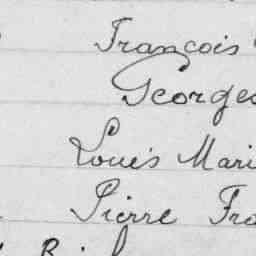 François
Georges
Louis Mari
Pierre Fra